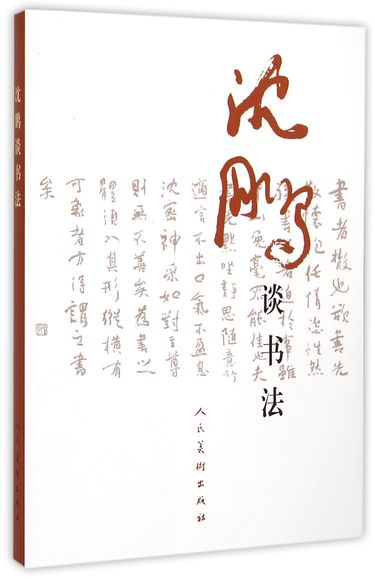 沈鹏谈书法
沈鹏
谈书法
書者散也欲書先
散懷抱任情恣性然
書之若迫於事雖
兔毫不能佳也夫
默坐靜思隨意所
適言不出口氣不盈息
沈密神采如對至尊
則無不善矣為書之
體須入其形縱橫有
可象者方得謂之書
矣
人民美術出版社